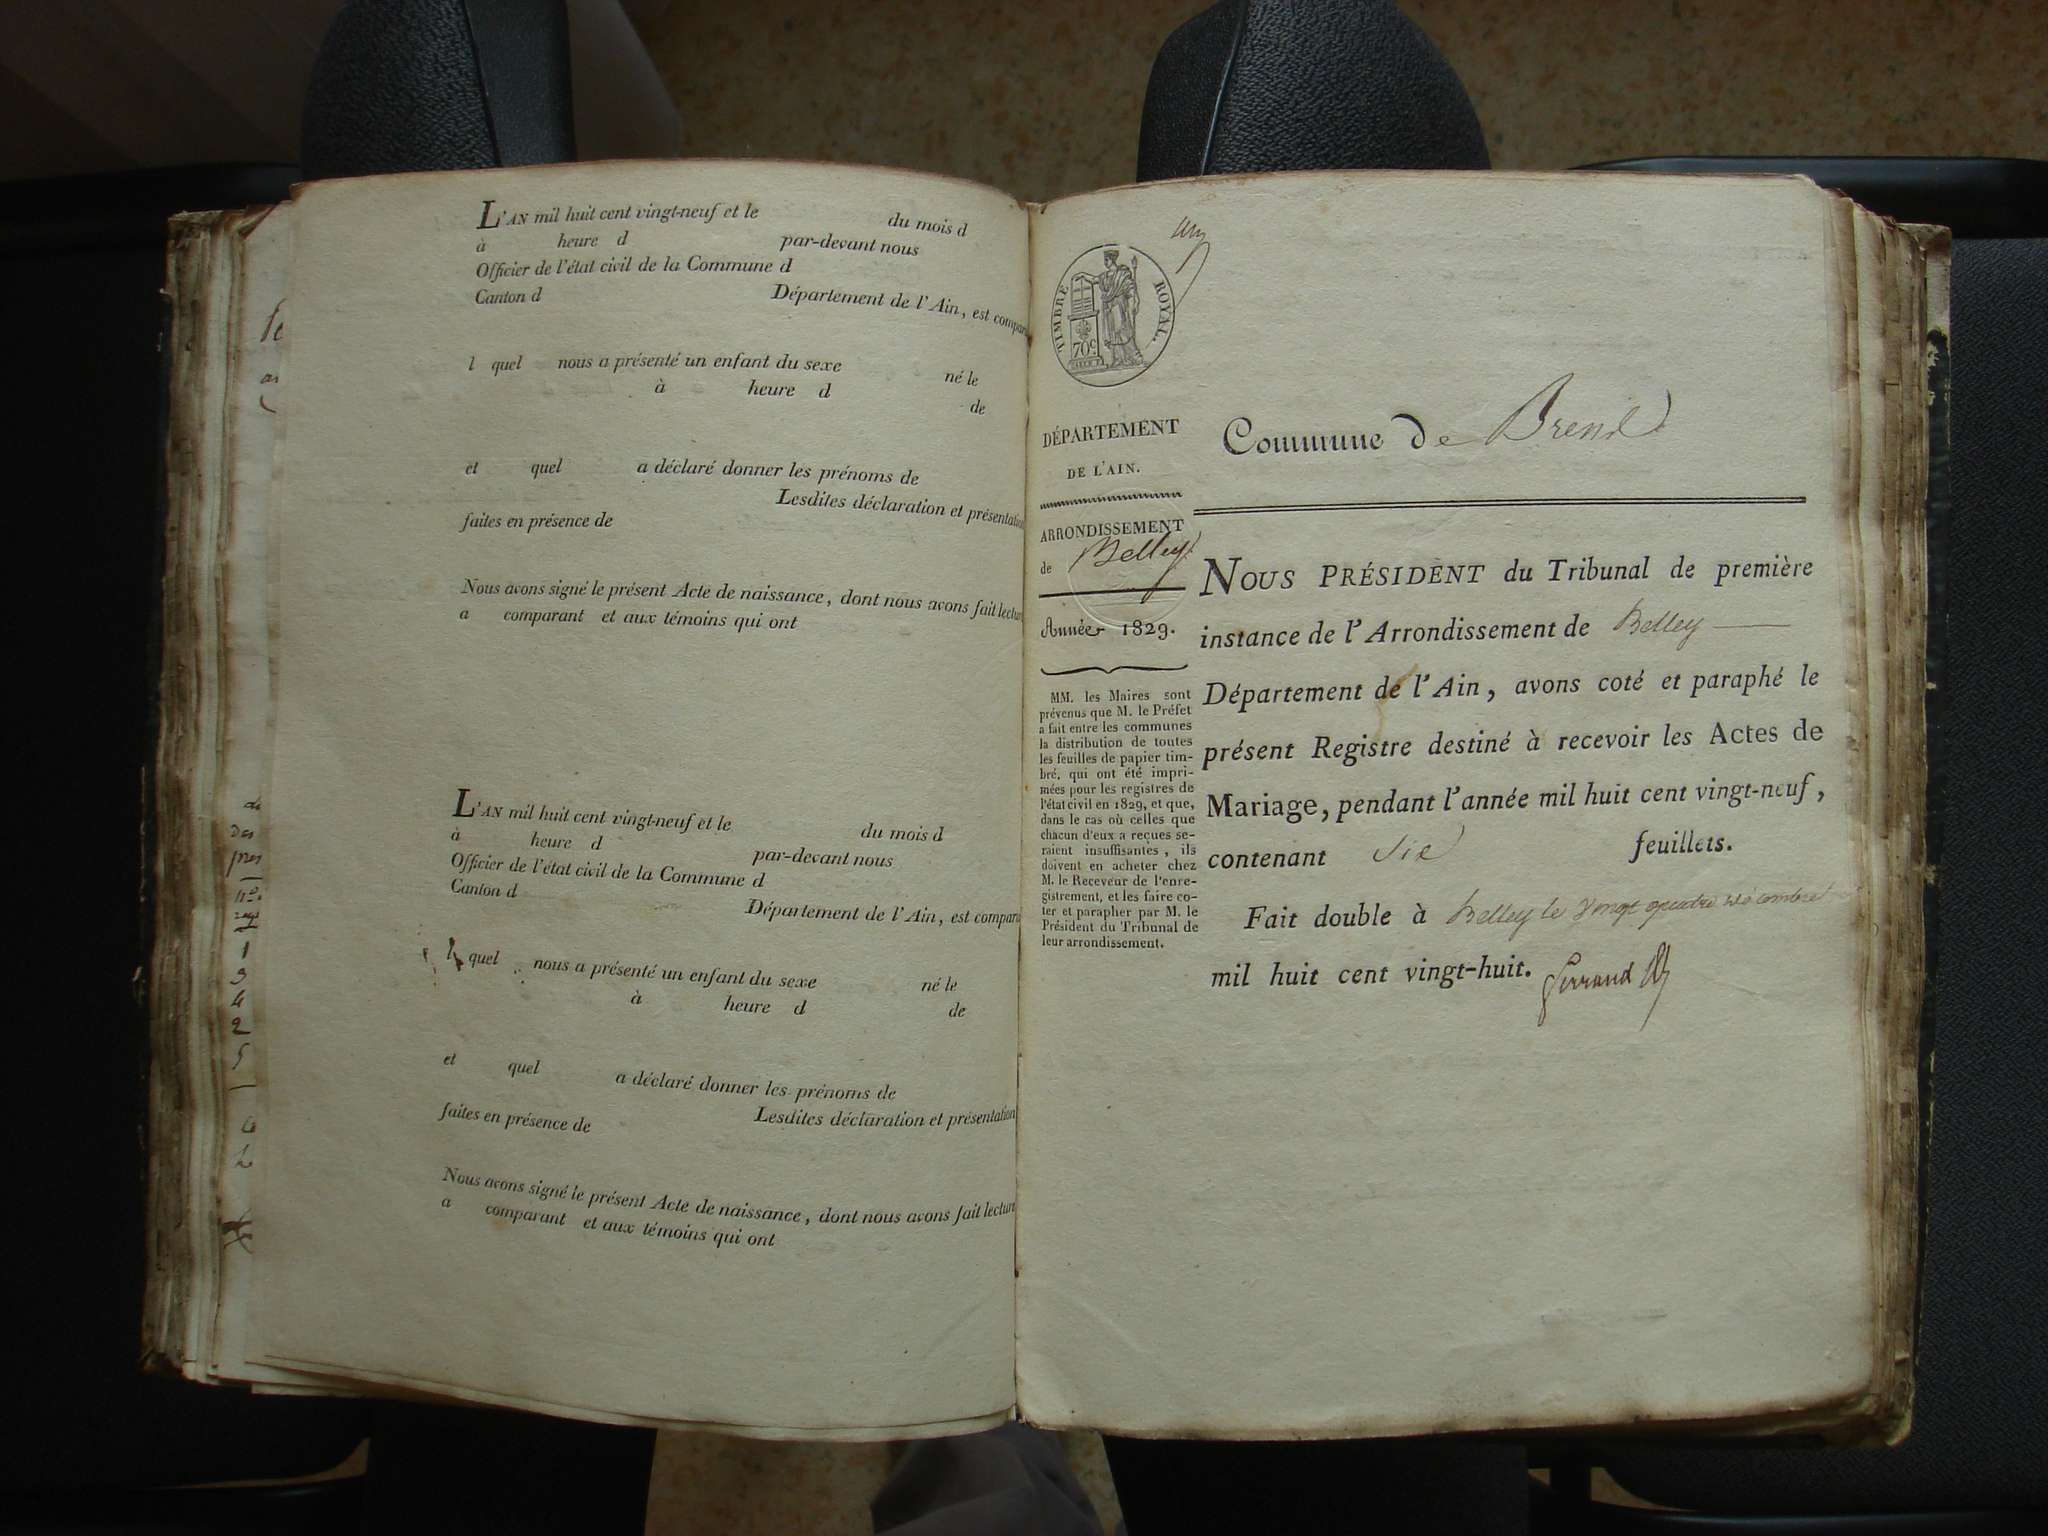 L'AN mil huit cent vingt-neuf et le du mois d
à heure d par-devant nous
Officier de l'état civil de la Commune d
Canton d Département de l'Ain, est compara
l quel nous a présenté un enfant du sexe né le
à heure d de
et quel a déclaré donner les prénoms de
Lesdites déclaration et présentation
faites en présence de
Nous avons signé le présent Acte de naissance, dont nous avons fait lecture
a comparant et aux témoins qui ont
L'AN mil huit cent vingt-neuf et le du mois d
à heure d par-devant nous
Officier de l'état civil de la Commune d
Canton d Département de l'Ain, est compara
l quel nous a présenté un enfant du sexe né le
à heure d de
et quel a déclaré donner les prénoms de
Lesdites déclaration et présentation
faites en présence de
Nous avons signé le présent Acte de naissance, dont nous avons fait lecture
a comparant et aux témoins qui ont
1
3
4
2
5
TIMBRE ROYAL.
70c
DÉPARTEMENT
DE L'AIN.
ARRONDISSEMENT
de Belley
Année 1829.
MM. les Maires sont
prévenus que M. le Préfet
a fait entre les communes
la distribution de toutes
les feuilles de papier tim-
bré, qui ont été impri-
mées pour les registres de
l'état civil en 1829, et que,
dans le cas où celles que
chacun d'eux a reçues se-
raient insuffisantes, ils
doivent en acheter chez
M. le Receveur de l'enre-
gistrement, et les faire co-
ter et parapher par M. le
Président du Tribunal de
leur arrondissement.
Commune de
NOUS PRÉSIDENT du Tribunal de première
instance de l'Arrondissement de Belley
Département de l'Ain, avons coté et paraphé le
présent Registre destiné à recevoir les Actes de
Mariage, pendant l'année mil huit cent vingt-neuf,
contenant Six feuillets.
Fait double à Belley le vingt quatre décembre
mil huit cent vingt-huit.